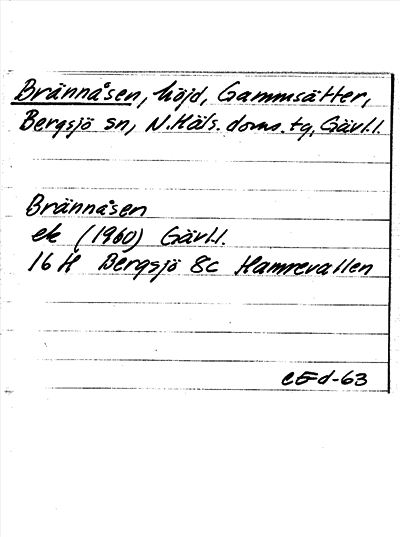 Brännåsen, höjd, Gammsätter,
Bergsjö sn, N.Häls. doms. tg, Gävl.l.
Brännåsen
ek (1960) Gävl.l.
16 H Bergsjö 8c Hamrevallen
CEd-63